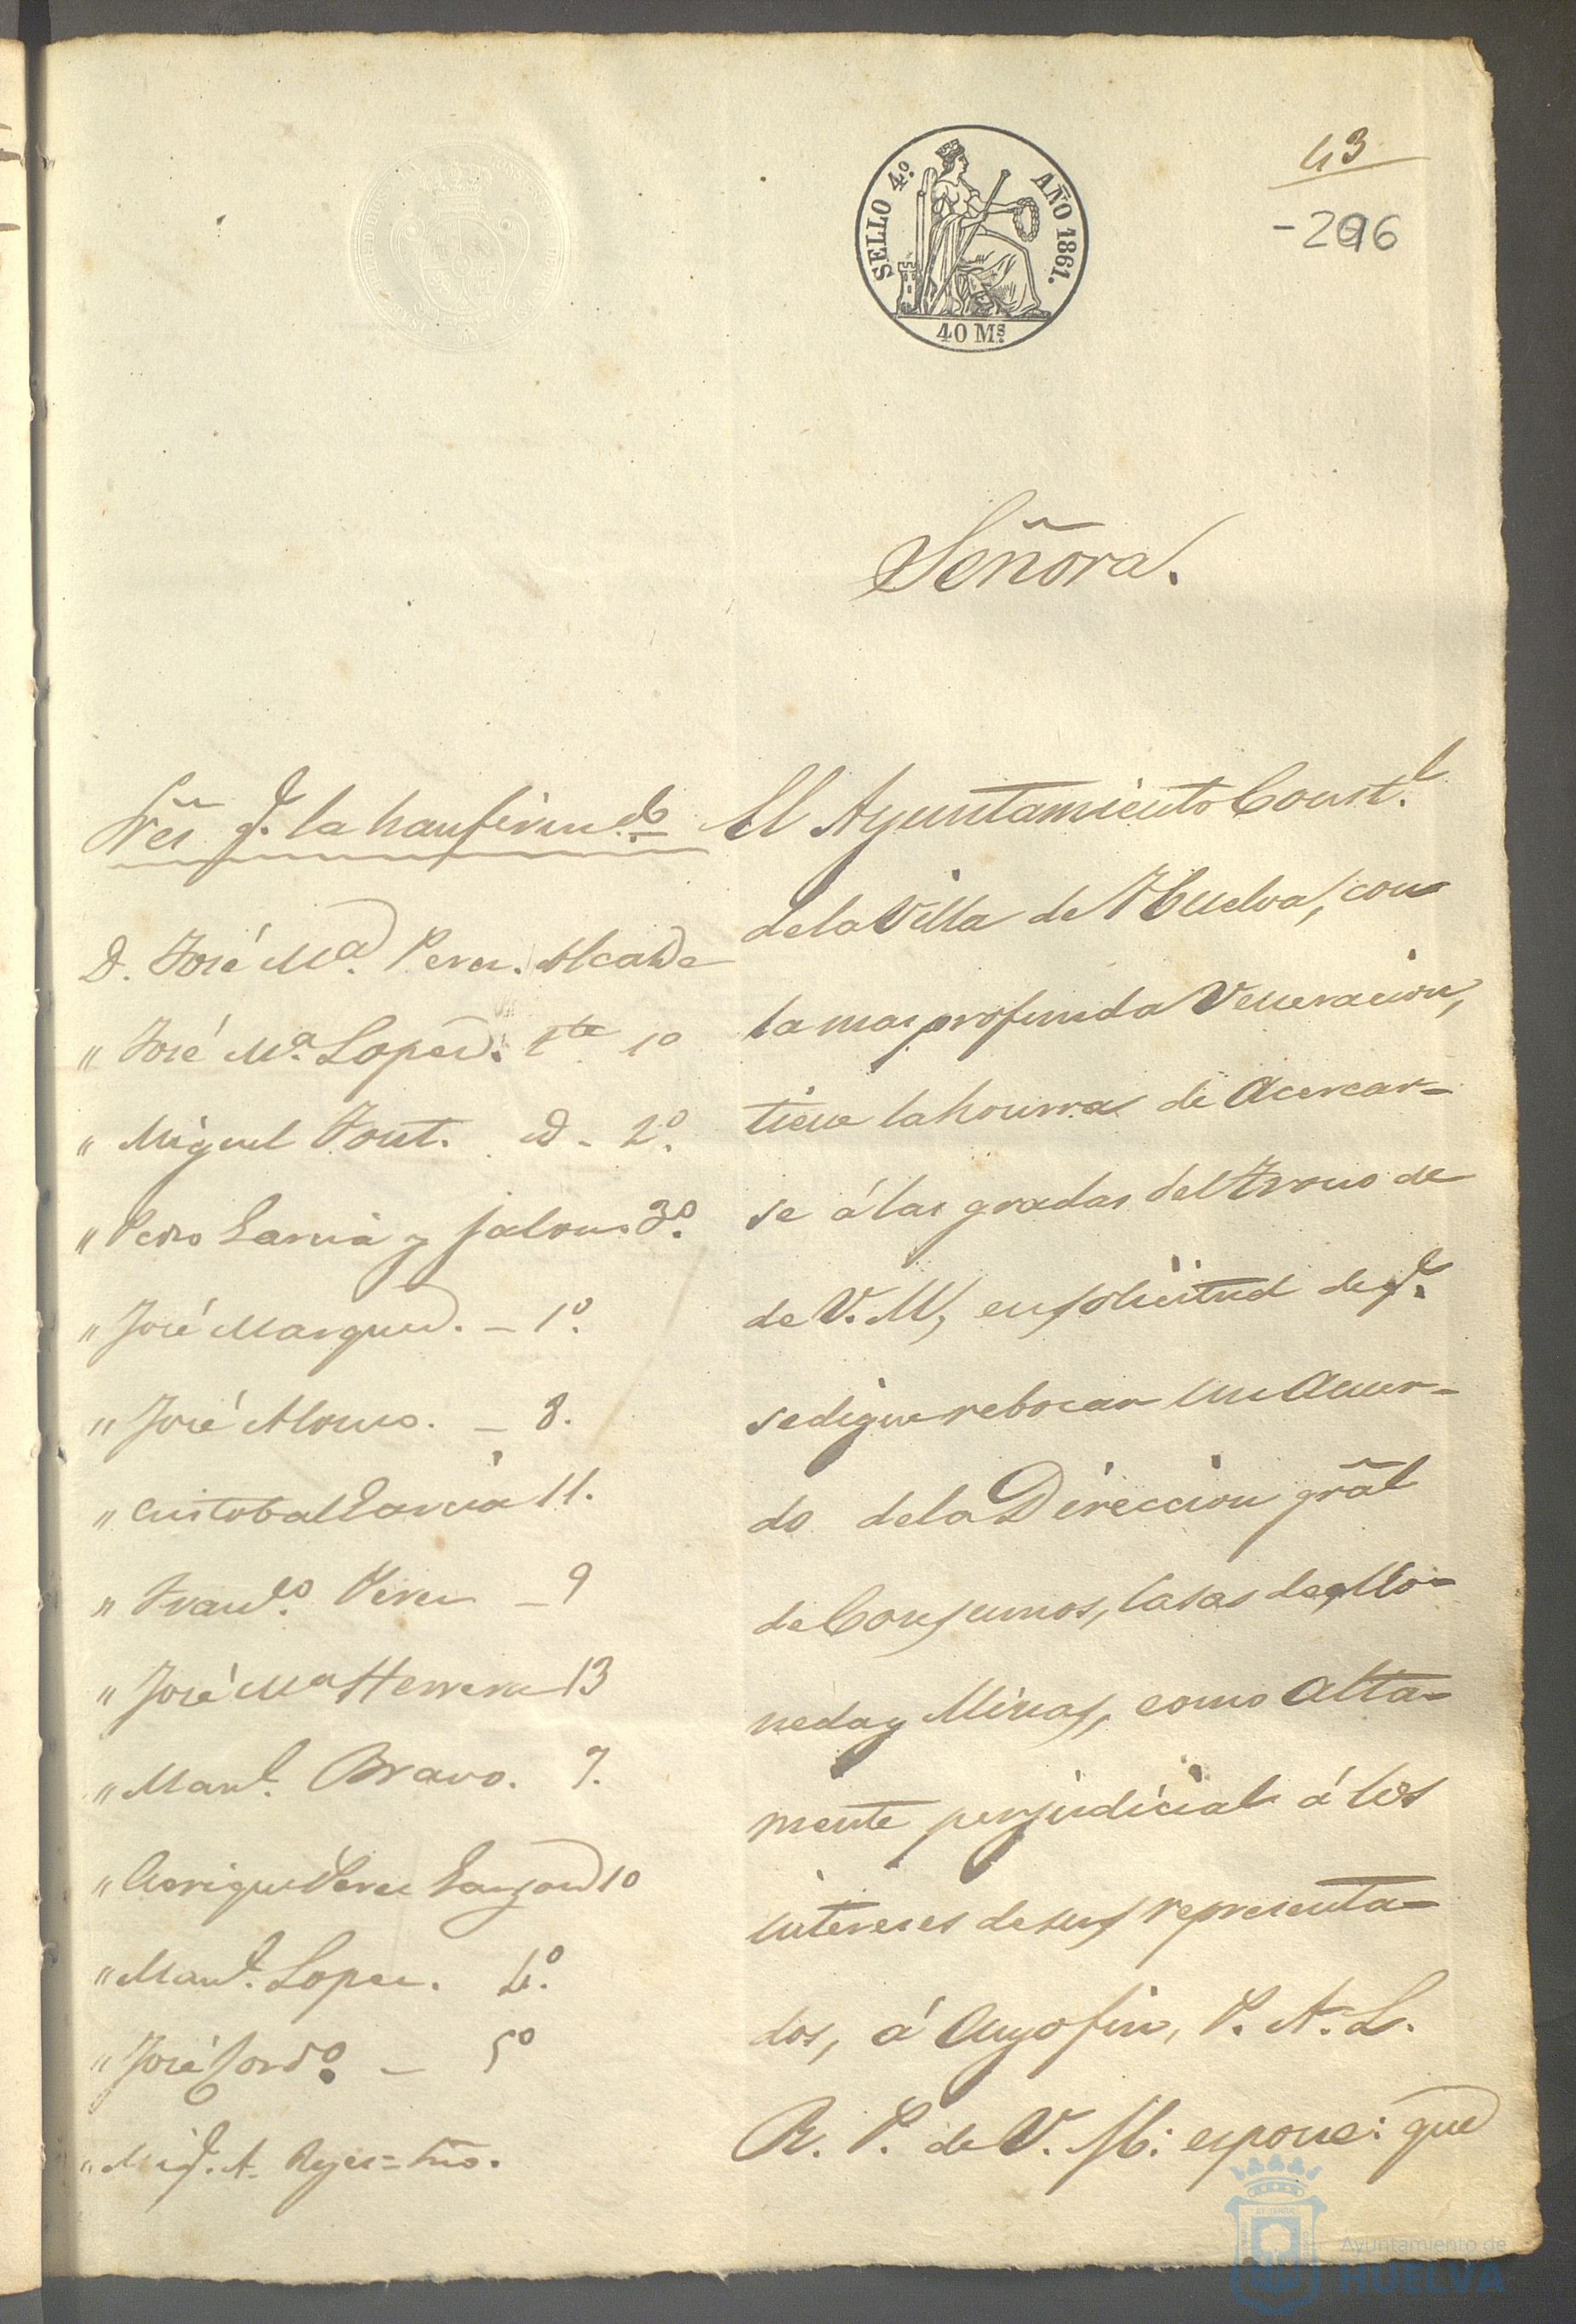 SELLO 4º. AÑO 1861.
40 Ms.
43
-296
Señora.
Sres. q. la han firmdo
D. José Ma. Perez. Alcalde
" José Ma. Lopez. Tte 1º
" Miguel Font. id - 2º.
" Pedro Garcia y Jalon. 3º.
" José Marquez. - 1º.
" José Alonso. - 8.
" Cristobal Garcia 11.
" Franco. Perez - 9
" José Ma Herrera 13
" Manl. Bravo. 7.
" Perez 10
" Manl. Lopez. 4º.
" José Cordo. - 5º
" Migl. A. Reyes = Srio.
El Ayuntamiento Constl.
de la Villa de Huelva, con
la mas profunda Veneracion,
tiene la honrra de Acercar-
se á las gradas del Trono de
de V. M, en solicitud de qe.
se digne rebocar un Acuer-
do de la Direccion gral
de Consumos, Casas de Mo-
neda y Minas, como Alta-
mente perjudicial á los
intereses de sus representa-
dos, á Cuyo fin, P. A. L.
R. P. de V. M: espone: que
Ayuntamiento de
HUELVA